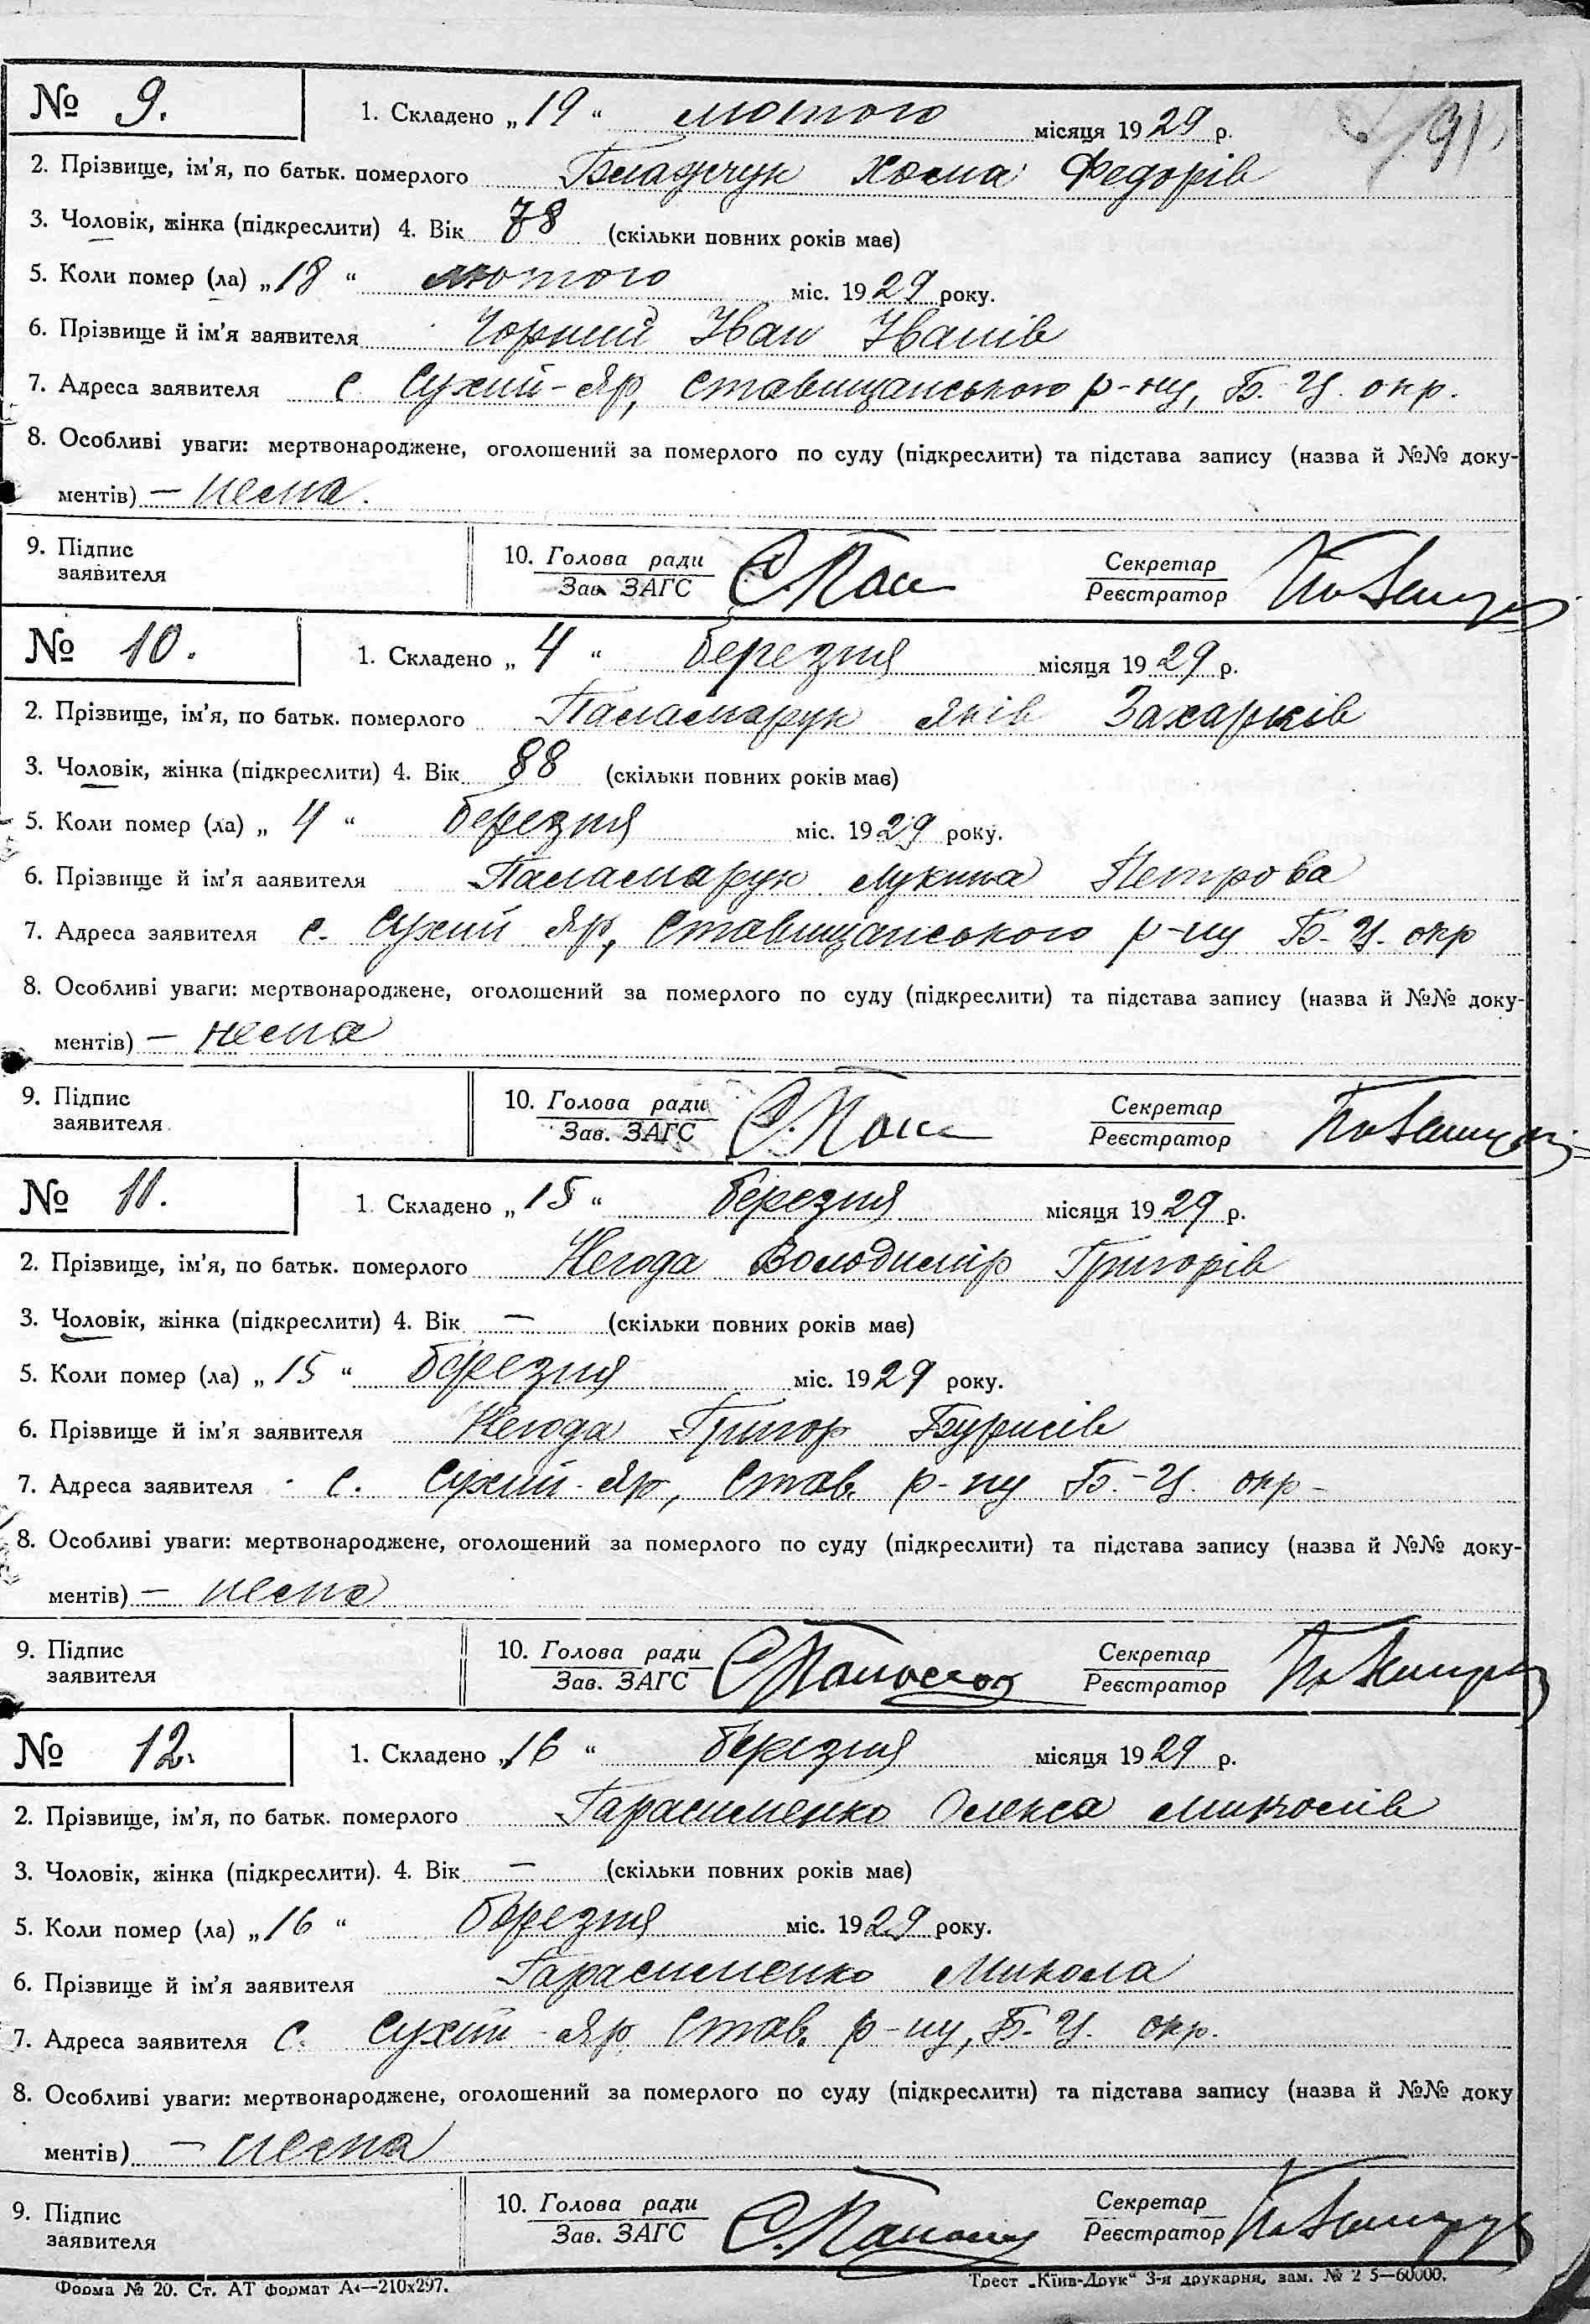 № 9. 1. Складено „19“ лютого місяця 1929 р. 91
2. Прізвище, ім'я, по батьк. померлого Блажчук Хома Федорів
3. Чоловік, жінка (підкреслити) 4. Вік 78 (скільки повних років має)
5. Коли помер (ла) „18“ лютого міс. 1929 року.
6. Прізвище й ім'я заявителя Чорний Іван Іванів
7. Адреса заявителя с. Сухий-Яр, Ставищанського р-ну, Б.-Ц. окр.
8. Особливі уваги: мертвонароджене, оголошений за померлого по суду (підкреслити) та підстава запису (назва й №№ доку-
ментів) — нема.
9. Підпис заявителя 10. Голова ради Зав. ЗАГС Секретар Реєстратор
№ 10. 1. Складено „4“ березня місяця 1929 р.
2. Прізвище, ім'я, по батьк. померлого Паламарук Яків Захарків
3. Чоловік, жінка (підкреслити) 4. Вік 88 (скільки повних років має)
5. Коли помер (ла) „4“ березня міс. 1929 року.
6. Прізвище й ім'я заявителя Паламарук Лукина Петрова
7. Адреса заявителя с. Сухий Яр, Ставищанського р-ну Б.-Ц. окр
8. Особливі уваги: мертвонароджене, оголошений за померлого по суду (підкреслити) та підстава запису (назва й №№ доку-
ментів) — нема
9. Підпис заявителя 10. Голова ради Зав. ЗАГС Секретар Реєстратор
№ 11. 1. Складено „15“ березня місяця 1929 р.
2. Прізвище, ім'я, по батьк. померлого Негода Володимір Григорів
3. Чоловік, жінка (підкреслити) 4. Вік — (скільки повних років має)
5. Коли помер (ла) „15“ березня міс. 1929 року.
6. Прізвище й ім'я заявителя Негода Григор Бурисів
7. Адреса заявителя с. Сухий-Яр, Став. р-ну Б.-Ц. окр-
8. Особливі уваги: мертвонароджене, оголошений за померлого по суду (підкреслити) та підстава запису (назва й №№ доку-
ментів) — нема
9. Підпис заявителя 10. Голова ради Зав. ЗАГС Секретар Реєстратор
№ 12. 1. Складено „16“ березня місяця 1929 р.
2. Прізвище, ім'я, по батьк. померлого Гарасименко Олекса Миколів
3. Чоловік, жінка (підкреслити). 4. Вік — (скільки повних років має)
5. Коли помер (ла) „16“ березня міс. 1929 року.
6. Прізвище й ім'я заявителя Гарасименко Микола
7. Адреса заявителя с. Сухий-Яр Став. р-ну, Б.-Ц. окр.
8. Особливі уваги: мертвонароджене, оголошений за померлого по суду (підкреслити) та підстава запису (назва й №№ доку
ментів) — нема
9. Підпис заявителя 10. Голова ради Зав. ЗАГС Секретар Реєстратор
Форма № 20. Ст. АТ формат А4—210х297. Трест „Київ-Друк“ 3-я друкарня, зам. № 2 5—60000.